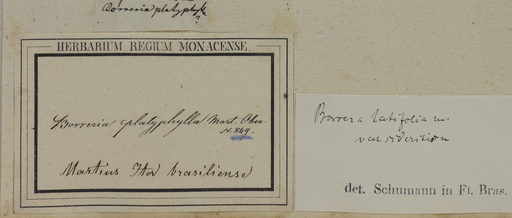 Borreria platyphylla
?
HERBARIUM REGIUM MONACENSE.
Borreria platyphylla Mart. Obs.
N. 849.
Martius Iter brasiliense
Borrera latifolia
var.
det. Schumann in Fl. Bras.